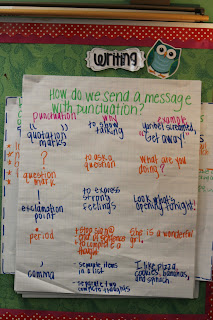 writing
How do we send a message
with punctuation?
punctuation why example
" " to show talking
quotation marks
Get away!
? to ask a question What are you doing?
question mark
! to express strong feelings Look what's opening tonight!
exclamation point
. period
She is a wonderful girl.
, comma
separate items in a list
I like pizza, cookies, bananas, and spinach
separate two complete thoughts